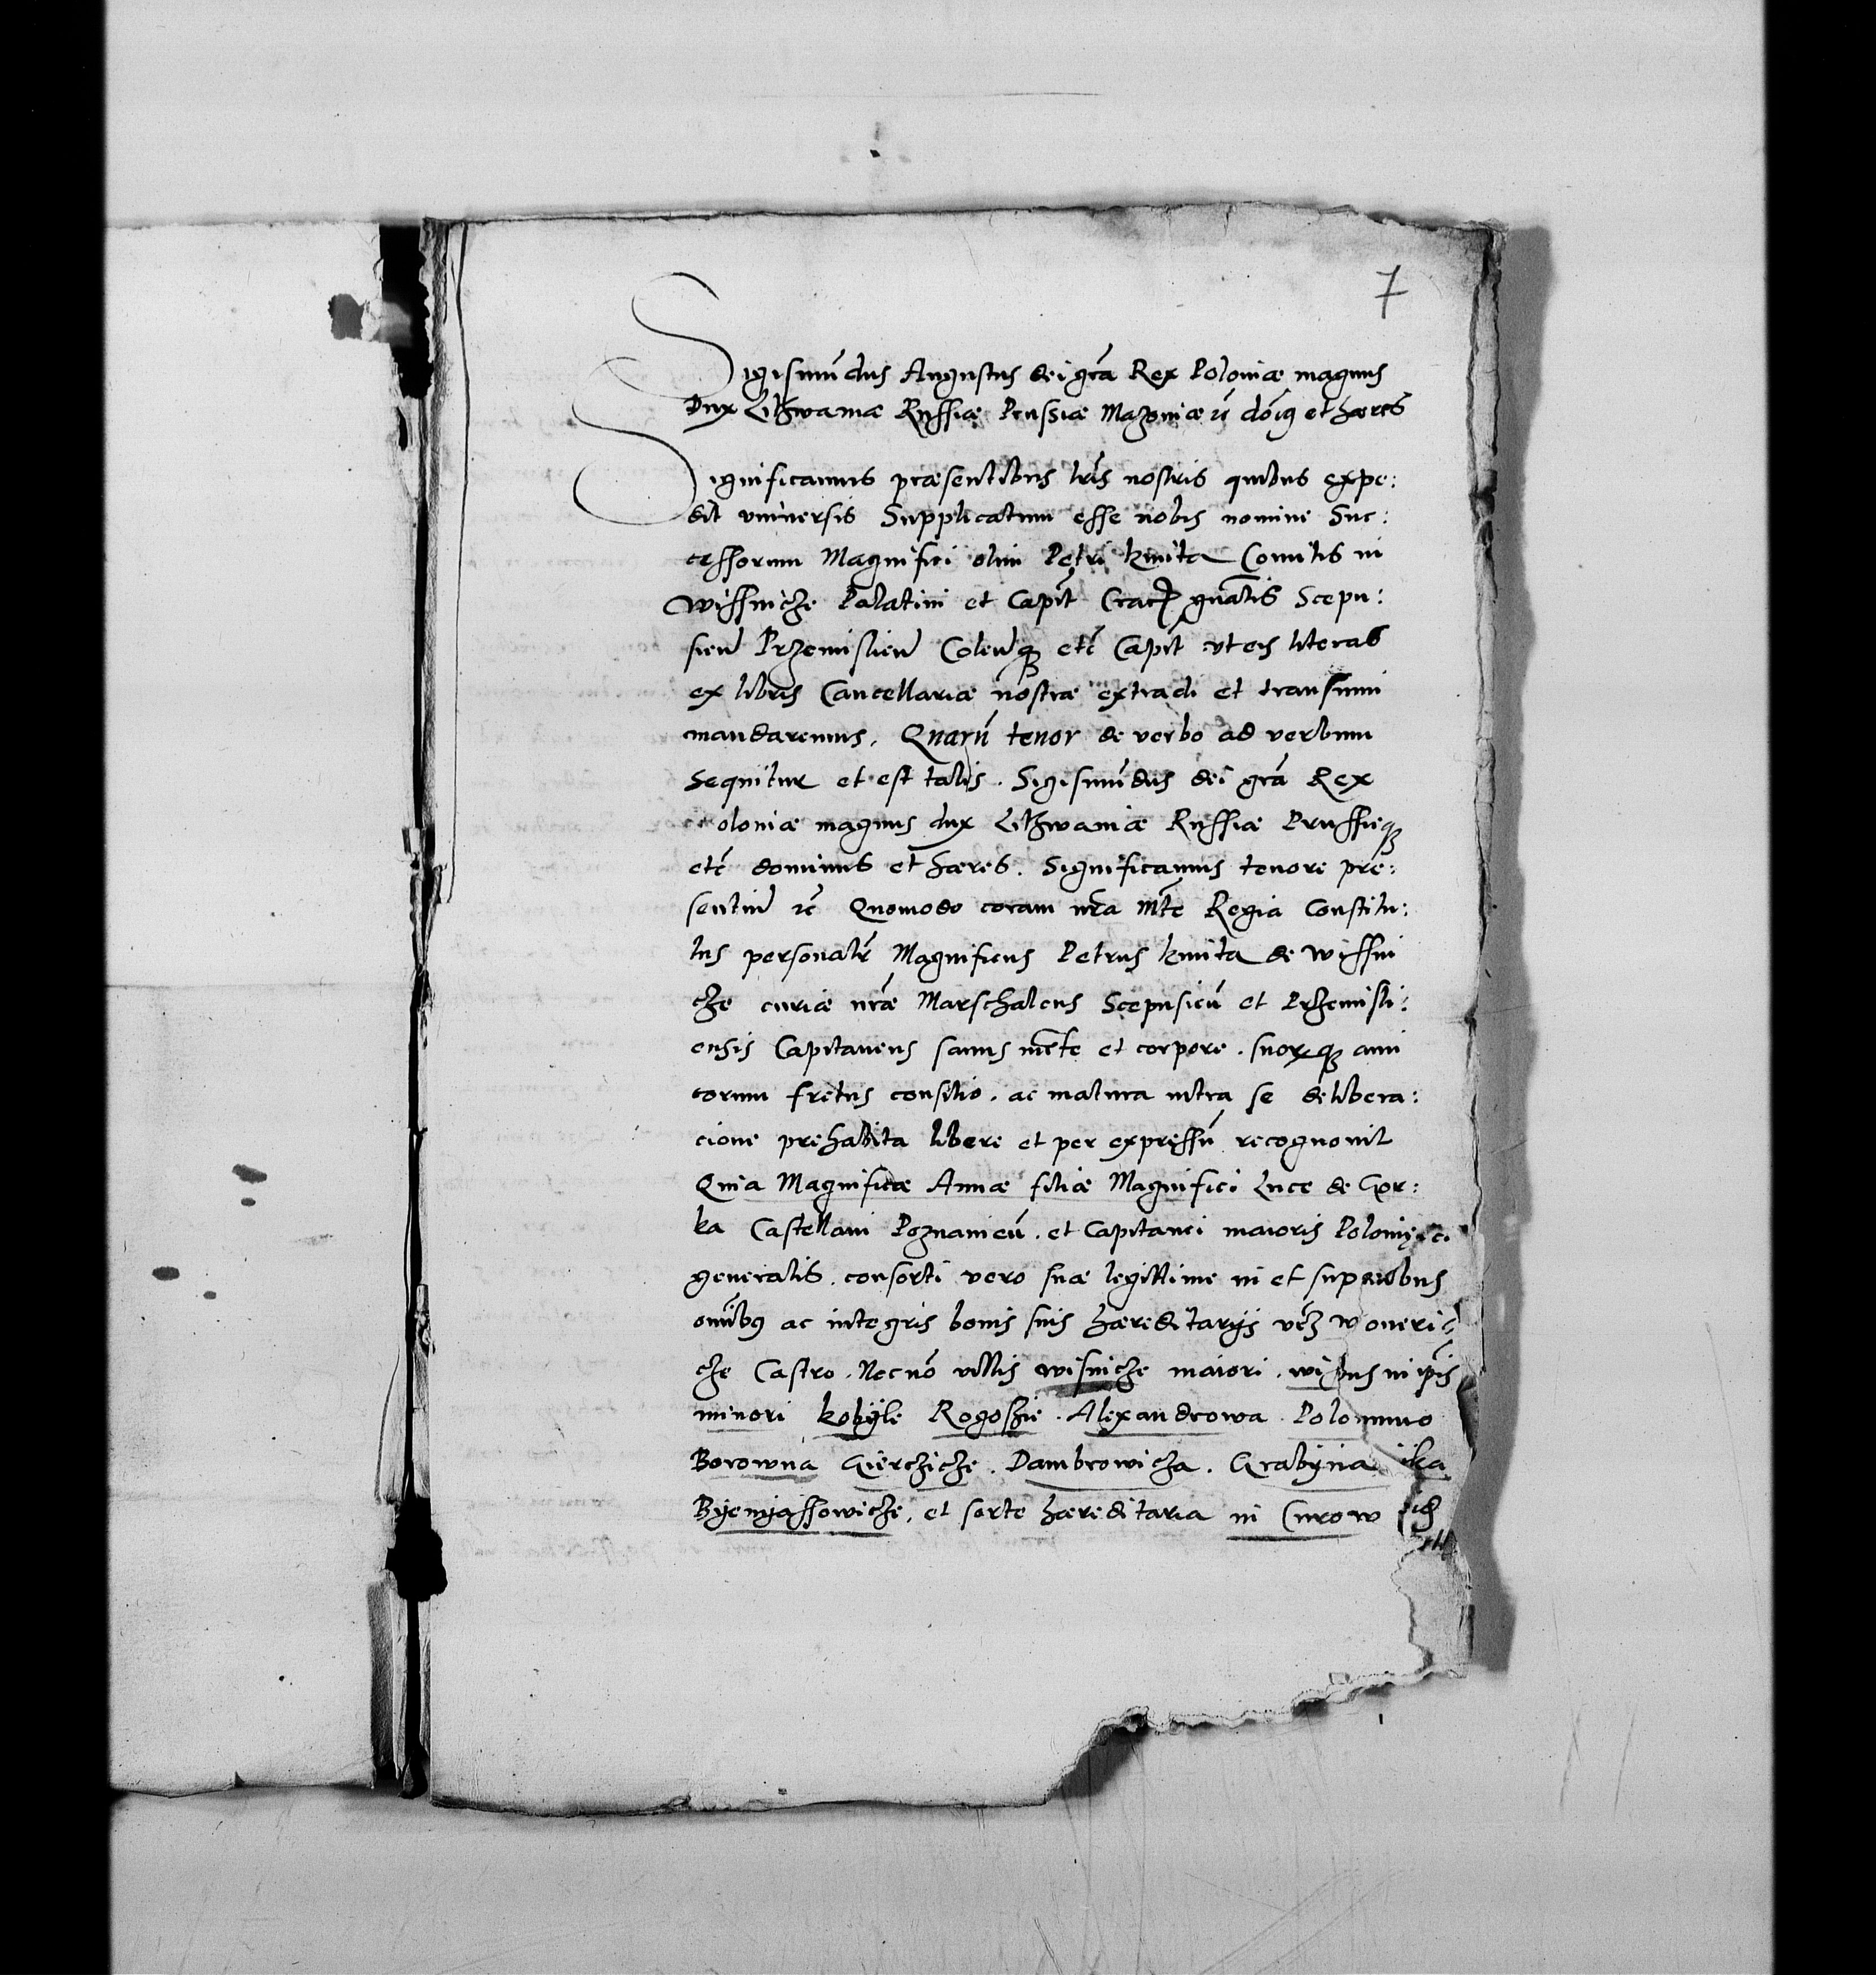 7
Sigismūdus Augustus dei grā Rex Poloniæ magnus
Dux Lithwaniæ Russiæ Prussiæ Mazoviæ &c dōīq et hæres
Significamus præsentibus lrīs nostris quibus expe:
dit universis Supplicatum esse nobis nomine Suc:
cessorum Magnifici olim Petri kmita Comitis in
wissnicze Palatini et Capit̄ Crac gnālis Scepu:
sien Przemislien Colen q etc̄ Capit̄ ut eis literas
ex libris Cancellariæ nostræ extradi et transsumi
mandaremus. Quarū tenor de verbo ad verbum
sequitur et est talis. Sigismūdus dei grā Rex
oloniæ magnus dux Lithwaniæ Russiæ Prussieq
etc̄ dominus et hæres. Significamus tenore pre:
sentiu &c Quomodo coram nrā mtē Regia Constitu:
tus personalr̄ Magnificus Petrus kmita de wissni
cze curiæ nrǣ Marschalcus Scepusieū et Przemisli:
ensis Capitaneus sanus mēte et corpore. suorq ami
corum fretus consilio. ac matura intra se delibera:
cione prehabita libere et per expressū recognovit
Quia Magnificæ Annæ filiæ Magnifici Luce de Gor:
ka Castellani Poznanieū. et Capitanei maioris Polon
generalis. consorti vero suæ legittime in et super
omībq ac integris bonis suis hæreditarijs vcz
cze Castro. Nec nō villis wisnicze maiori.
minori kobyle Rogoszie. Alexandrowa. Polomino
Borowna Gierczicze. Dambrowicza. Grabyna
Byenyassowicze. et sorte hæreditaria in Curow